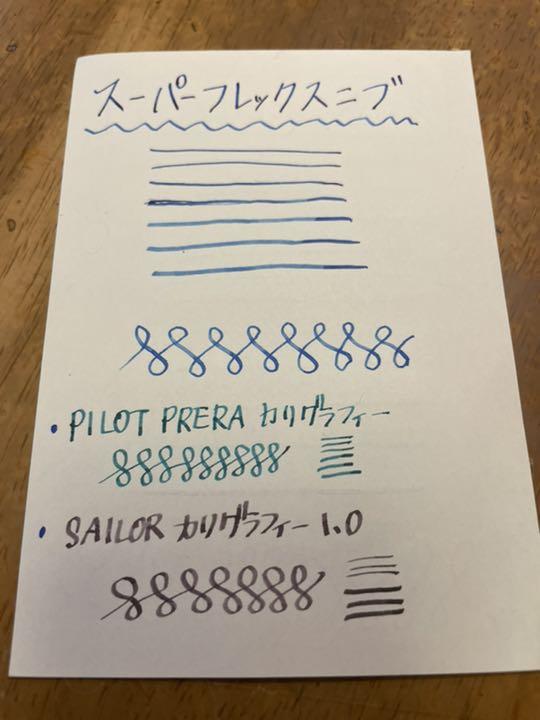 スーパーフレックスニブ
• PILOT PRERA カリグラフィー
• SAILOR カリグラフィー 1.0